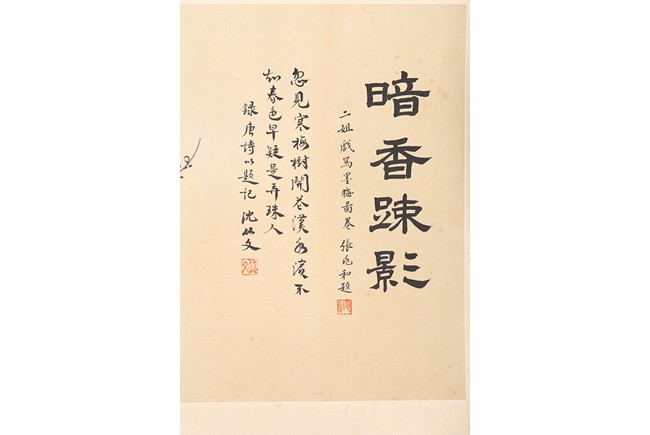 暗香疎影
二姐戏写墨梅图卷 張兆和題
忽見寒梅樹開花漢水濱不
知春色早疑是弄珠人
録唐詩以題記 沈從文